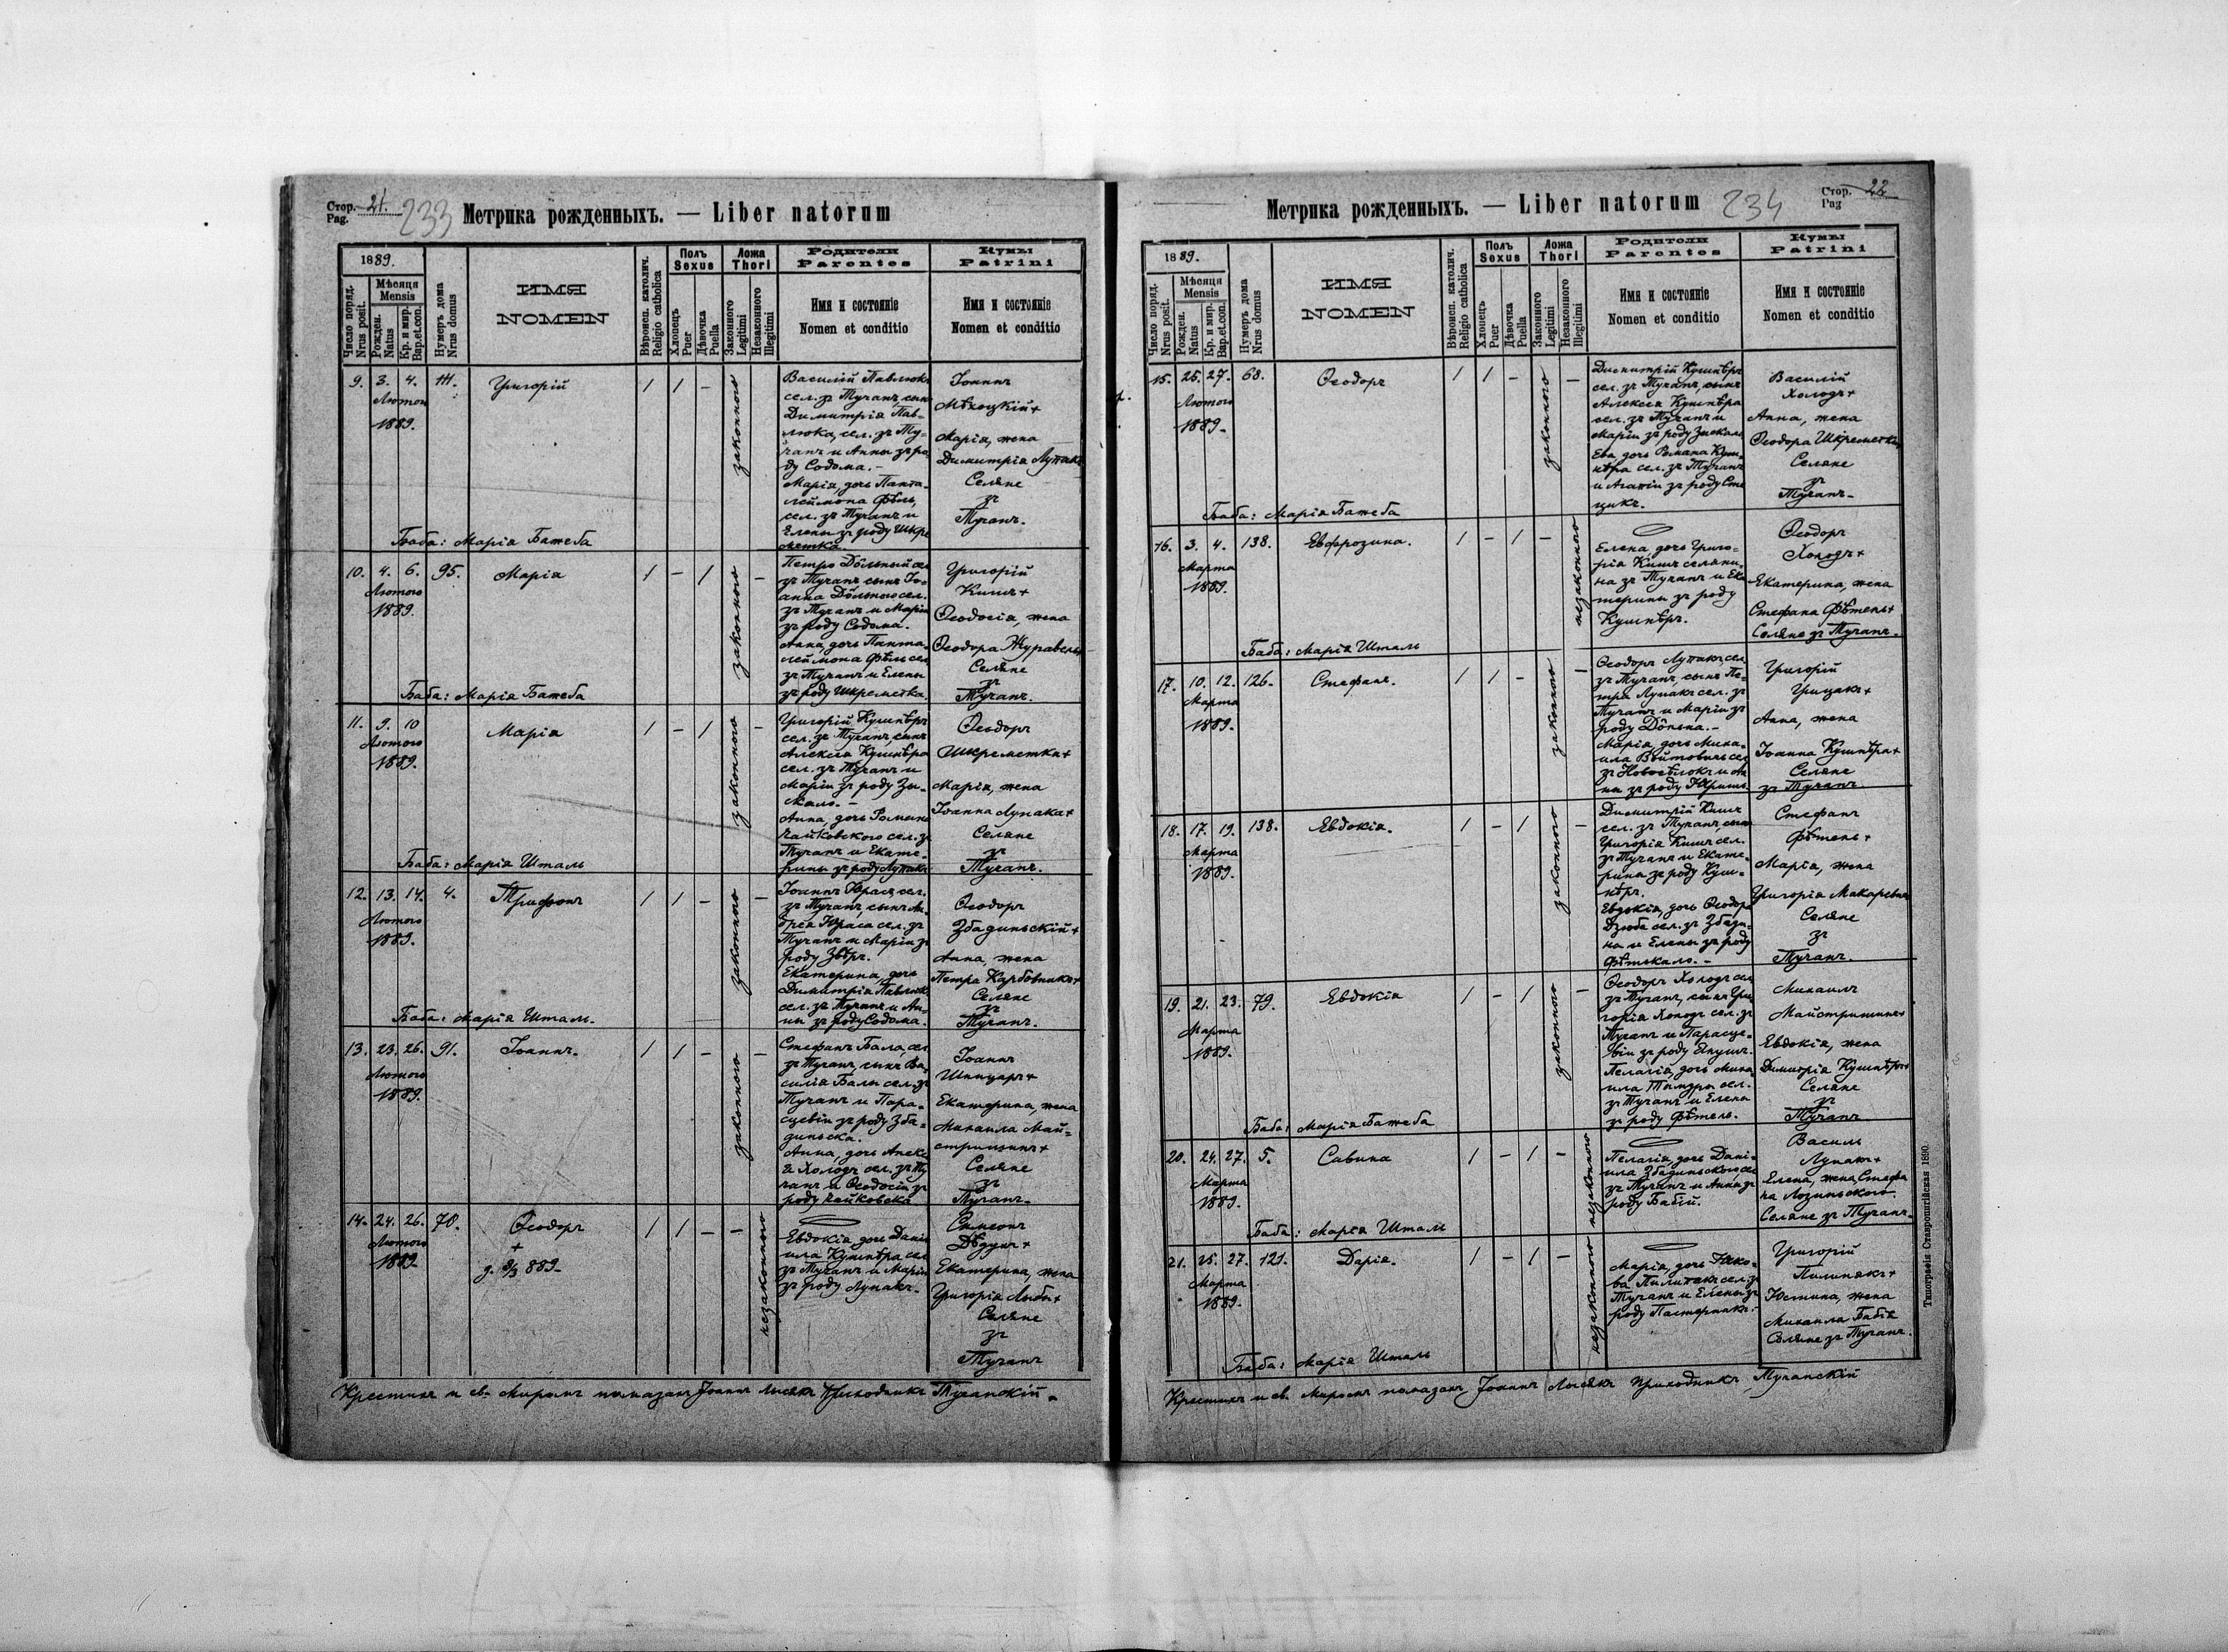 Стор. 21.
Pag.
233
Метрика рожденныхъ. — Liber natorum
1889.
Число поряд.
Nrus posit.
Мѣсяця
Mensis
Рожден.
Natus
Кр. и мир.
Bap.et.con.
Нумеръ дома
Nrus domus
ИМЯ
NOMEN
Вѣроисп. католич.
Religio catholica
Полъ
Sexus
Хлопецъ
Puer
Дѣвочка
Puella
Ложа
Thori
Законного
Legitimi
Незаконного
Illegitimi
Родители
Parentes
Имя и состояніе
Nomen et conditio
Кумы
Patrini
Имя и состояніе
Nomen et conditio
9. 3. 4. 111. Григорій / / –
Лютого
1889.
законного
Василій Павлюкъ
сел. зъ Тучапъ, сынъ
Димитрія Пав-
люка, сел. зъ Ту-
чапъ и Анны зъ ро-
ду Содома. –
Марія, дочь Панта-
леймона Фѣль,
сел. зъ Тучапъ и
Елены зъ роду Шкре
метка.
Іоаннъ
Мѣхоцкій+
Марія, жена
Димитрія Лупакъ
Селяне
зъ
Тучапъ.
Баба: Марія Бажеба
10. 4. 6. 95. Марія / – / –
Лютого
1889.
законного
Петро Дольный сел
зъ Тучапъ сынъ Іо-
анна Дольного сел.
зъ Тучапъ и Маріи
зъ роду Содома.
Анна, дочь Панта-
леймона Фѣль сел.
зъ Тучапъ и Елены
зъ роду Шкреметка.
Григорій
Кишъ+
Ѳеодосія, жена
Ѳеодора Журавель
Селяне
зъ
Тучапъ.
Баба: Марія Бажеба
11. 9. 10 Марія / – / –
Лютого
1889.
законного
Григорій Кушнѣръ
сел. зъ Тучапъ, сынъ
Алексія Кушнѣра
сел. зъ Тучапъ и
Маріи зъ роду Зы-
скаль. –
Анна, дочь Романа
Чайковского сел. зъ
Тучапъ и Екате-
рины зъ роду Лупакъ
Ѳеодоръ
Шкреметка+
Марія, жена
Іоанна Лупака+
Селяне
зъ
Тучапъ.
Баба: Марія Шталь
12. 13. 14. 4. Трифонъ / / – –
Лютого
1889.
законного
Іоаннъ Юрася сел.
зъ Тучапъ, сынъ Ан-
дрея Юраса сел. зъ
Тучапъ и Маріи зъ
роду Звѣръ.
Екатерина, дочь
Димитрія Павлюкъ
сел. зъ Тучапъ и Ан-
ны зъ роду Содома.
Ѳеодоръ
Збадиньскій+
Анна, жена
Петра Карбовника+
Селяне
зъ
Тучапъ.
Баба: Марія Шталь.
13. 23. 26. 91. Іоаннъ. / / – –
Лютого
1889.
законного
Стефанъ Бала, сел
зъ Тучапъ, сынъ Ва-
силія Балы сел. зъ
Тучапъ и Пара-
сцевіи зъ роду Зба-
диньска.
Анна, дочь Алекс
ія Холодъ сел. зъ Ту
чапъ и Ѳеодосіи зъ
роду Чайковска
Іоаннъ
Шпицаръ+
Екатерина, жена
Михаила Май-
стришинъ+
Селяне
зъ
Тучапъ.
14. 24. 26. 70. Ѳеодоръ / / – –
Лютого
1889
+
д. 3/3 889.
незаконного
Евдокія дочь Дані
ила Кушнѣра сел
зъ Тучапъ и Маріи
зъ роду Лупакъ.
Симеонъ
Дѣдухъ+
Екатерина, жена
Григорія Лыбы+
Селяне
зъ
Тучапъ
Крестилъ и св. Миромъ помазалъ Іоаннъ Лысякъ Приходникъ Тучапскій.
Метрика рожденныхъ. — Liber natorum
234
Стор. 22
Pag
1889.
Число поряд.
Nrus posit.
Мѣсяця
Mensis
Рожден.
Natus
Кр. и мир.
Bap.et.con.
Нумеръ дома
Nrus domus
ИМЯ
NOMEN
Вѣроисп. католич.
Religio catholica
Полъ
Sexus
Хлопецъ
Puer
Дѣвочка
Puella
Ложа
Thori
Законного
Legitimi
Незаконного
Illegitimi
Родители
Parentes
Имя и состояніе
Nomen et conditio
Кумы
Patrini
Имя и состояніе
Nomen et conditio
15. 25. 27. 68. Ѳеодоръ / / – –
Лютого
1889.
законного
Димитрій Кушнѣръ
сел. зъ Тучапъ, сынъ
Алексія Кушнѣра
сел. зъ Тучапъ и
Маріи зъ роду Зыскаль
Ева дочь Романа Куш-
нѣра сел. зъ Тучапъ
и Агапіи зъ роду Сте
цикъ.
Василій
Холодъ+
Анна, жена
Ѳеодора Шкреметка
Селяне
зъ
Тучапъ.
Баба: Марія Бажеба
16. 3. 4. 138. Евфрозина. / – / –
Марта
1889.
незаконного
Елена дочь Григо-
рія Кишъ селяни-
на зъ Тучапъ и Ека
терины зъ роду
Кушнѣръ.
Ѳеодоръ
Холодъ+
Екатерина, жена
Стефана Фѣтель+
Селяне зъ Тучапъ.
Баба: Марія Шталь
17. 10. 12. 126. Стефанъ. / / – –
Марта
1889.
законного
Ѳеодоръ Лупакъ, сел.
зъ Тучапъ, сынъ Пе-
тра Лупакъ сел. зъ
Тучапъ и Маріи зъ
роду Допска. –
Марія, дочь Миха-
ила Войтовичъ сел
зъ Новосѣлокъ и Ан
ны зъ роду Юришъ.
Григорій
Грицакъ+
Анна, жена
Іоанна Кушнѣра+
Селяне
зъ Тучапъ.
18. 17. 19. 138. Евдокія. / – / –
Марта
1889.
законного
Димитрій Кишъ
сел. зъ Тучапъ, сынъ
Григорія Кишъ сел.
зъ Тучапъ и Екате-
рины зъ роду Куш-
нѣръ.
Евдокія, дочь Ѳеодора
Дзюба сел. зъ Збади-
на и Елены зъ роду
Стефанъ
Фѣтель+
Марія, жена
Григорія Макаревича
Селяне
зъ
Тучапъ.
19. 21. 23. 79. Евдокія / – / –
Марта
1889.
законного
Ѳеодоръ Холодъ сел
зъ Тучапъ, сынъ Гри
горія Холодъ сел. зъ
Тучапъ и Парасце-
віи зъ роду Якушъ.
Пелагія, дочь Миха-
ила сел.
зъ Тучапъ и Елена
зъ роду Фѣтель.
Михаилъ
Майстришинъ+
Евдокія, жена
Димитрія Кушнѣра+
Селяне
зъ
Тучапъ
Баба: Марія Бажеба
20. 24. 27. 5. Савина / – / –
Марта
1889.
незаконного
Пелагія, дочь Дані-
ила Збадиньского, сел
зъ Тучапъ и Анны зъ
роду Бабій.
Василь
Лупакъ+
Елена, жена Стефа
на Лозиньского.
Селяне зъ Тучапъ.
Баба: Марія Шталь
21. 25. 27. 121. Дарія. / – / –
Марта
1889.
незаконного
Марія, дочь Яко-
ва Пилипакъ сел. зъ
Тучапъ и Елены зъ
роду Пастернакъ.
Григорій
Пилипякъ+
Юстина, жена
Михаила Бабія
Селяне зъ Тучапъ.
Баба: Марія Шталь
Крестилъ и св. Миромъ помазалъ Іоаннъ Лысякъ Приходникъ Тучапскій
Типографія Ставропигійская 1890.